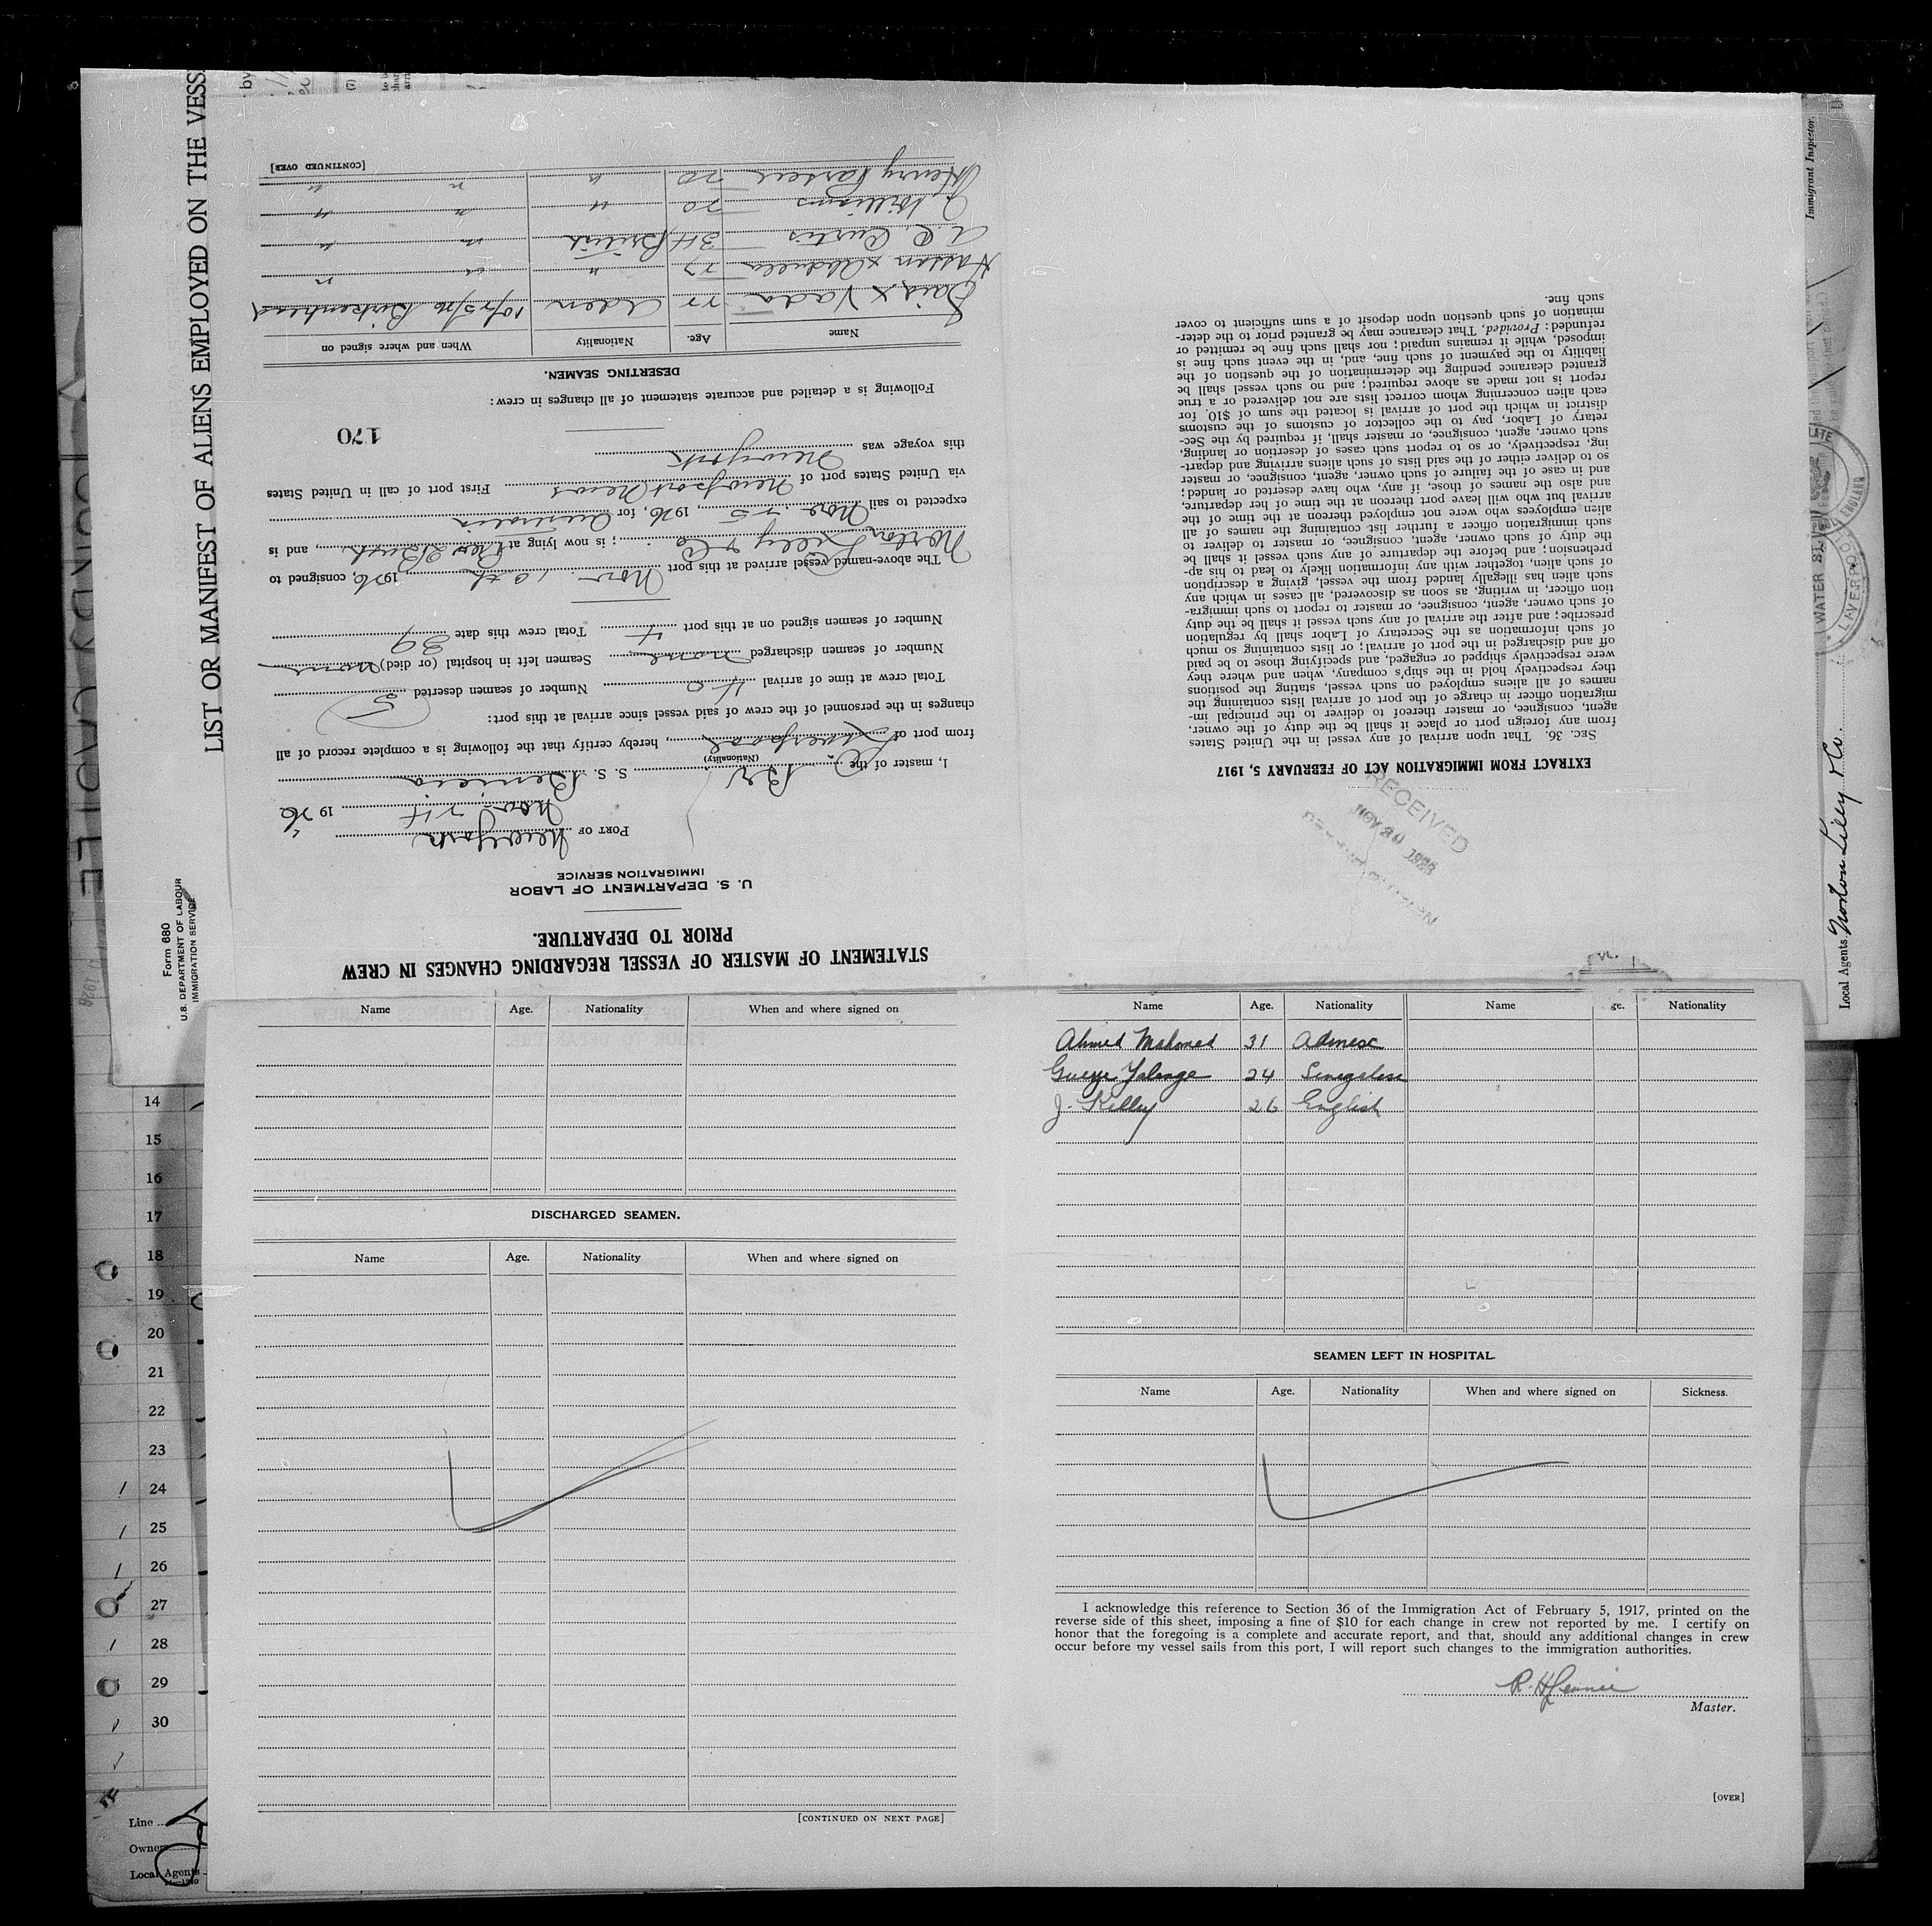 LIST OR MANIFEST OF ALIENS EMPLOYED ON THE VESS
Form 680
U.S. DEPARTMENT OF LABOUR
IMMIGRATION SERVICE
STATEMENT OF MASTER OF VESSEL REGARDING CHANGES IN CREW
PRIOR TO DEPARTURE.
U. S. DEPARTMENT OF LABOR
IMMIGRATION SERVICE
PORT OF New York
Nov 24 1926
I, master of the Br S. S. Benicia
(Nationality)
from port of Liverpool, hereby certify that the following is a complete record of all
changes in the personnel of the crew of said vessel since arrival at this port:
Total crew at time of arrival 40 Number of seamen deserted 5
Number of seamen discharged none Seamen left in hospital (or died) None
Number of seamen signed on at this port 4 Total crew this date 39
The above-named vessel arrived at this port Nov. 10th 1926, consigned to
Norton Lilly & Co; is now lying at, and is
expected to sail Nov 25, 1926, for Australia
via United States port of Newport News First port of call in United States
this voyage was New York
170
Following is a detailed and accurate statement of all changes in crew:
DESERTING SEAMEN.
Name Age. Nationality When and where signed on
Said x Yada 27 Aden 10/25/26 Birkenhead
Hassan x Abdulla 27 " " "
A. R. Curtis 34 British " "
J Williams 20 " " "
Henry Carsen 20 " " "
[CONTINUED OVER]
EXTRACT FROM IMMIGRATION ACT OF FEBRUARY 5, 1917
SEC. 36. That upon arrival of any vessel in the United States
from any foreign port or place it shall be the duty of the owner,
agent, consignee, or master thereof to deliver to the principal im-
migration officer in charge of the port of arrival lists containing the
names of all aliens employed on such vessel, stating the positions
they respectively hold in the ship's company, when and where they
were respectively shipped or engaged, and specifying those to be paid
off and discharged in the port of arrival; or lists containing so much
of such information as the Secretary of Labor shall by regulation
prescribe; and after the arrival of any such vessel it shall be the duty
of such owner, agent, consignee, or master to report to such immigra-
tion officer, in writing, as soon as discovered, all cases in which any
such alien has illegally landed from the vessel, giving a description
of such alien, together with any information likely to lead to his ap-
prehension; and before the departure of any such vessel it shall be
the duty of such owner, agent, consignee, or master to deliver to
such immigration officer a further list containing the names of all
alien employees who were not employed thereon at the time of the
arrival but who will leave port thereon at the time of her departure,
and also the names of those, if any, who have deserted or landed;
and in case of the failure of such owner, agent, consignee, or master
so to deliver either of the said lists of such aliens arriving and depart-
ing, respectively, or so to report such cases of desertion or landing,
such owner, agent, consignee, or master shall, if required by the Sec-
retary of Labor, pay to the collector of customs of the customs
district in which the port of arrival is located the sum of $10. for
each alien concerning whom correct lists are not delivered or a true
report is not made as above required; and no such vessel shall be
granted clearance pending the determination of the question of the
liability to the payment of such fine, and, in the event such fine is
imposed, while it remains unpaid; nor shall such fine be remitted or
refunded: Provided, That clearance may be granted prior to the deter-
mination of such question upon deposit of a sum sufficient to cover
such fine.
RECEIVED
NOV 30 1926
Immigrant Inspector.
WATER ST.
LIVERPOOL
ENGLAND
Local Agents Norton Lilly & Co.
Name Age. Nationality When and where signed on
DISCHARGED SEAMEN.
Name Age. Nationality When and where signed on
[CONTINUED ON NEXT PAGE]
Name Age. Nationality Name ge. Nationality
Ahmed Mahomed 31 Adnese
Gueye Yalange 24 Senegalese
J. Kelly 26 English
SEAMEN LEFT IN HOSPITAL.
Name Age. Nationality When and where signed on Sickness.
I acknowledge this reference to Section 36 of the Immigration Act of February 5, 1917, printed on the
reverse side of this sheet, imposing a fine of $10 for each change in crew not reported by me. I certify on
honor that the foregoing is a complete and accurate report, and that, should any additional changes in crew
occur before my vessel sails from this port, I will report such changes to the immigration authorities.
Master.
[OVER]
14
15
16
17
18
19
20
21
22
23
24
25
26
27
28
29
30
Line
Owner
Local Agents